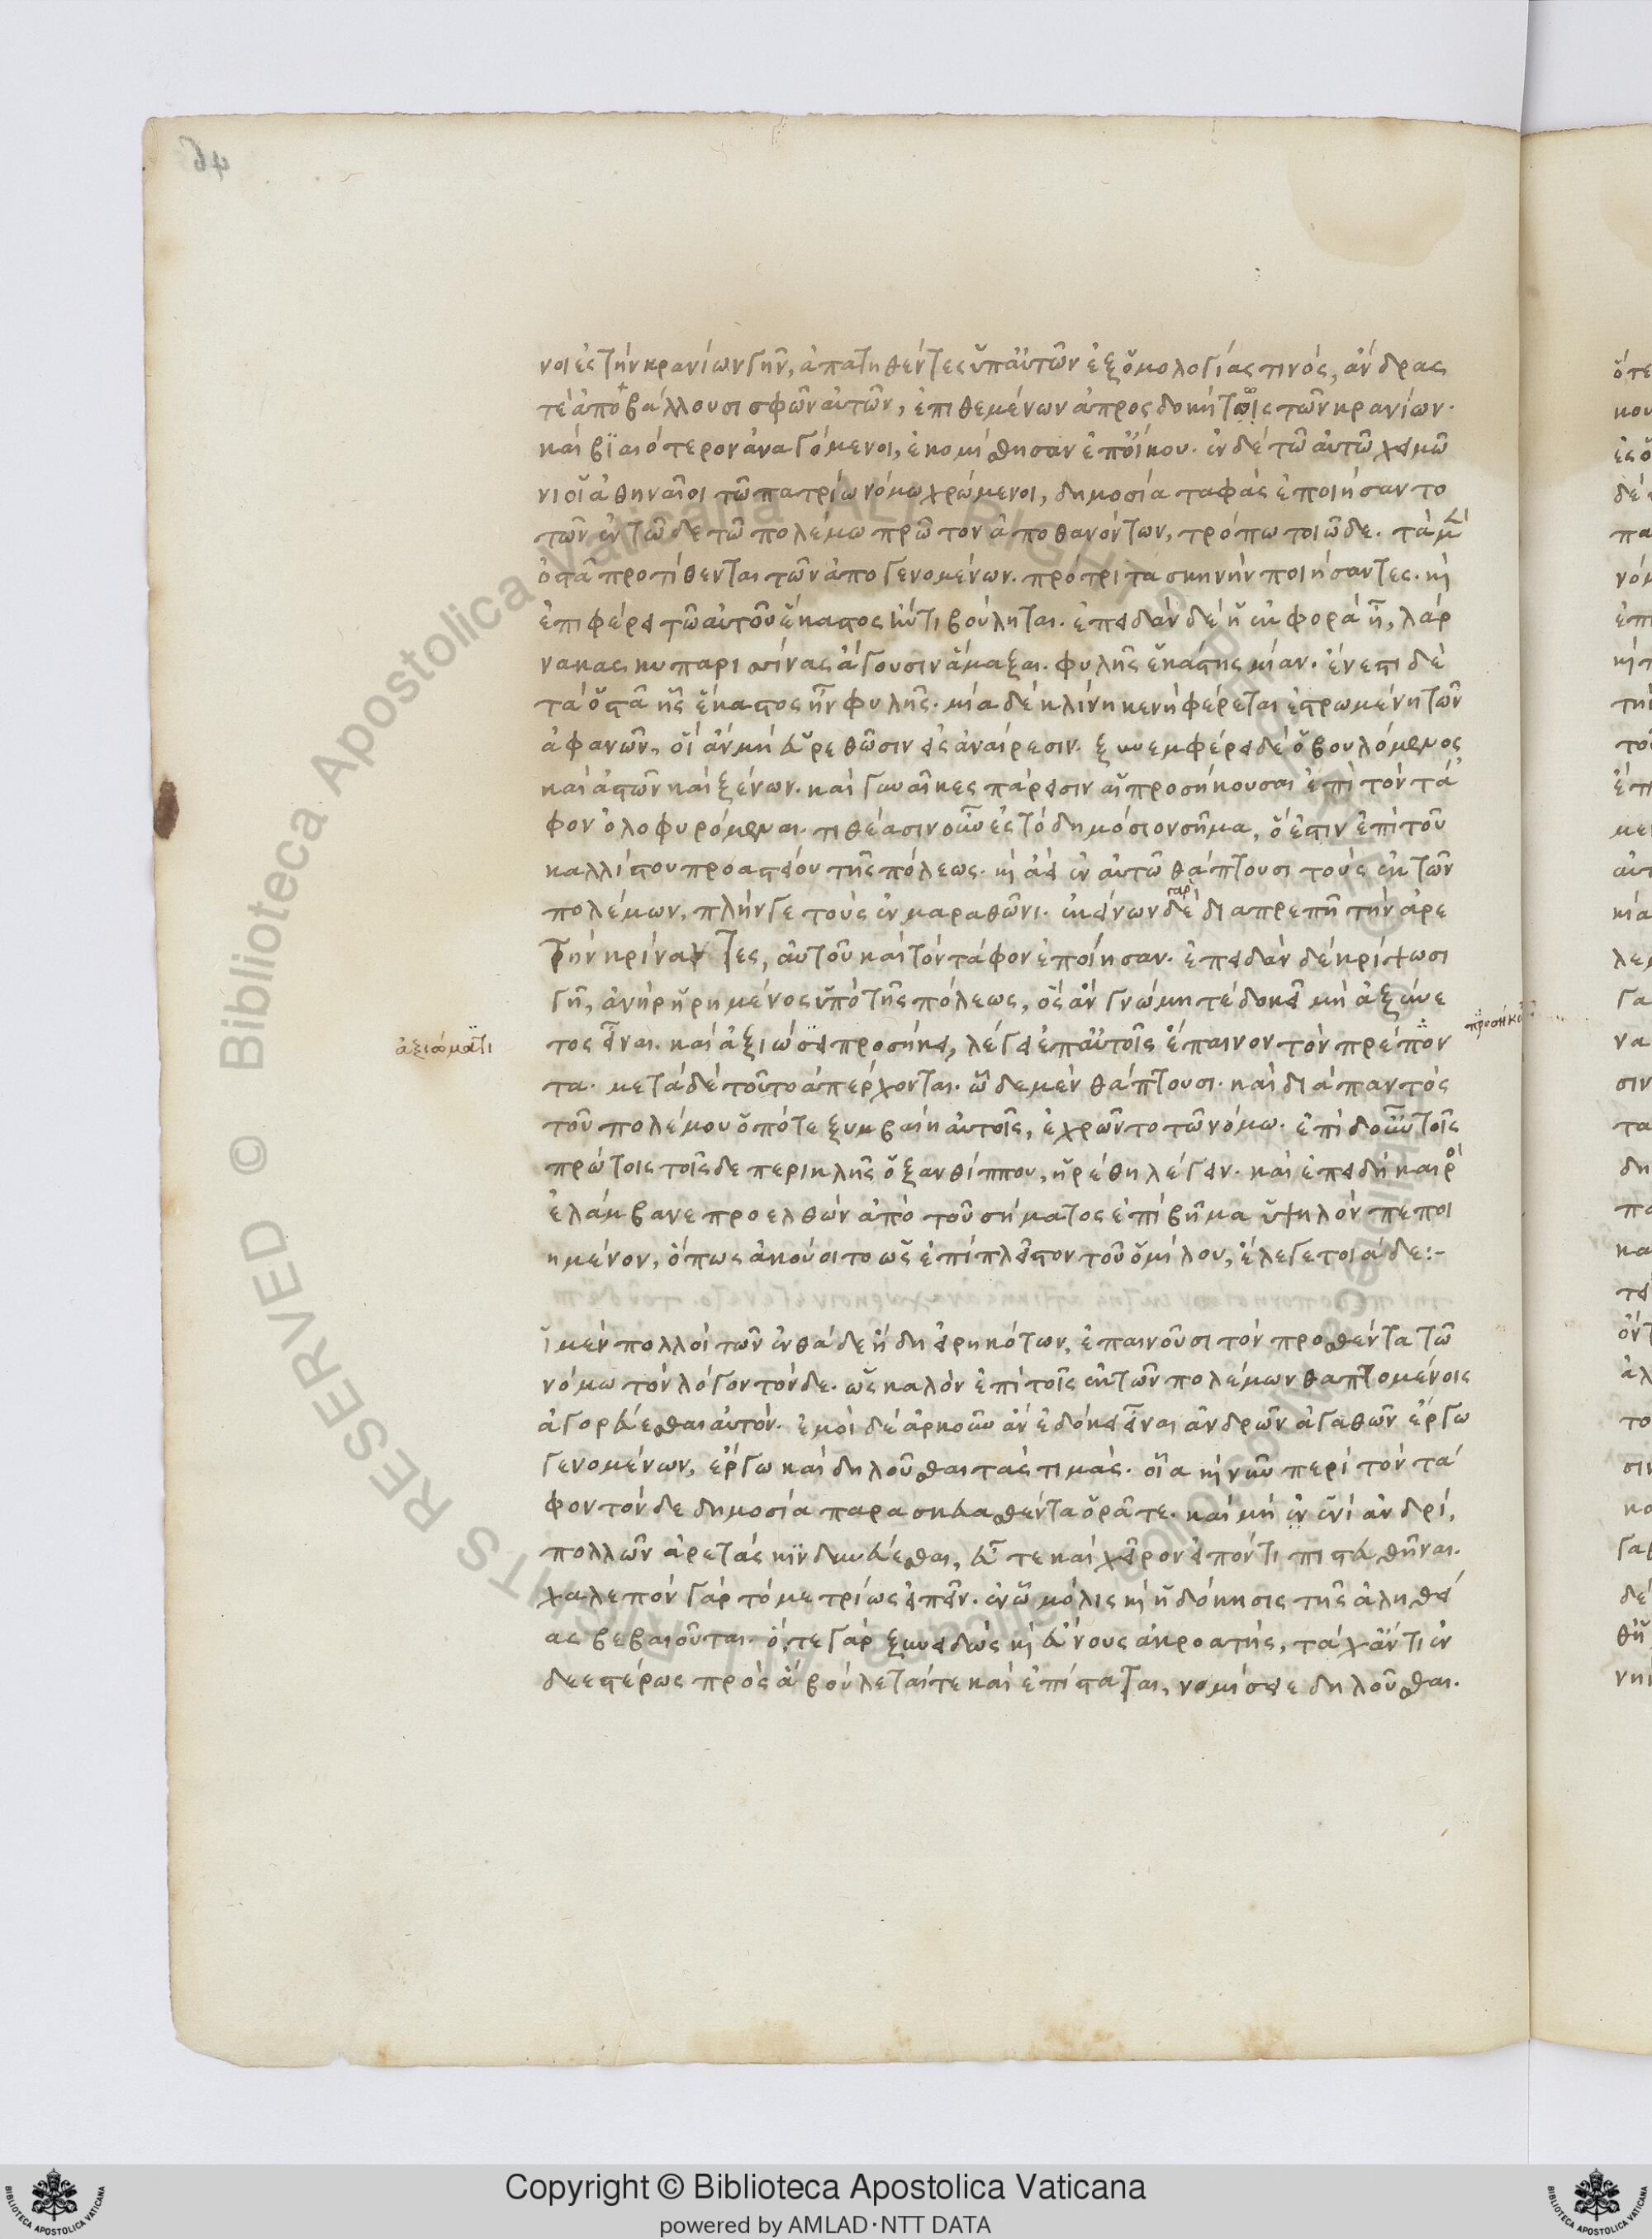 νοι ἐς τὴν κρανίων γῆν, ἀπατηθέντες ὑπ' αὐτῶν ἐξ ὁμολογίας τινός, ἄνδρας
τὲ ἀποβάλλουσι σφῶν αὐτῶν, ἐπιθεμένων ἀπροσδοκήτοις τῶν κρανίων.
καὶ βιαιότερον ἀναγόμενοι, ἐκομίσθησαν ἐπ' οἴκου. ἐν δὲ τῶ αὐτῶ χειμῶ
νι οἱ ἀθηναῖοι τῶ πατρίω νόμω χρώμενοι, δημοσία ταφὰς ἐποιήσαντο
τῶν ἐν τῶδε τῶ πολέμω πρῶτον ἀποθανόντων, τρόπω τοιῶδε. τὰ μὲν
ὀστᾶ προτίθενται τῶν ἀπογενομένων. πρότριτα σκηνὴν ποιήσαντες. καὶ
ἐπιφέρει τῶ αὐτοῦ ἕκαστος ἤν τι βούληται. ἐπειδὰν δὲ ἡ ἐκφορὰ ἦ, λάρ
νακας κυπαρισσίνας ἄγουσιν ἅμαξαι. φυλῆς ἑκάστης μίαν. ἔνεστι δὲ
τὰ ὀστᾶ ἧς ἕκαστος ἦν φυλῆς. μία δὲ κλίνη κενὴ φέρεται ἐστρωμένη τῶν
ἀφανῶν, οἳ ἂν μὴ εὑρεθῶσιν εἰς ἀναίρεσιν. ξυνεμφέρει δὲ ὁ βουλόμενος
καὶ ἀστῶν καὶ ξένων. καὶ γυναῖκες πάρεισιν αἱ προσήκουσαι ἐπὶ τὸν τά
φον ὀλοφυρόμεναι. τιθέασιν οὖν ἐς τὸ δημόσιον σῆμα, ὅ ἐστιν ἐπὶ τοῦ
καλλίστου προαστείου τῆς πόλεως. καὶ ἀεὶ ἐν αὐτῶ θάπτουσι τοὺς ἐκ τῶν
πολέμων, πλήν γε τοὺς ἐν μαραθῶνι. ἐκείνων δὲ γὰρ διαπρεπῆ τὴν ἀρε
τὴν κρίναντες, αὐτοῦ καὶ τὸν τάφον ἐποίησαν. ἐπειδὰν δὲ κρύψωσι
γῆ, ἀνὴρ ἡρημένος ὑπὸ τῆς πόλεως, ὃς ἂν γνώμη τὲ δοκεῖ μὴ ἀξύνε
ἀξιώματι τος εἶναι. καὶ ἀξιώσει προσήκει, λέγει ἐπ' αὐτοῖς ἔπαινον τὸν πρέπον
τα. μετὰ δὲ τοῦτο ἀπέρχονται. ὧδε μὲν θάπτουσι. καὶ διὰ παντὸς
τοῦ πολέμου ὁπότε ξυμβαίη αὐτοῖς, ἐχρῶντο τῶ νόμω. ἐπὶ δ' οὖν τοῖς
πρώτοις τοῖσδε περικλῆς ὁ ξανθίππου, ἡρέθη λέγειν. καὶ ἐπειδὴ καιρὸ
ἐλάμβανε προελθὼν ἀπὸ τοῦ σήματος ἐπὶ βῆμα ὑψηλὸν πεποι
ημένον, ὅπως ἀκούοιτο ὡς ἐπὶ πλεῖστον τοῦ ὁμίλου, ἔλεγε τοιάδε:-
ἱ μὲν πολλοὶ τῶν ἐνθάδε ἤδη εἰρηκότων, ἐπαινοῦσι τὸν προσθέντα τῶ
νόμω τὸν λόγον τόνδε. ὡς καλὸν ἐπὶ τοῖς ἐκ τῶν πολέμων θαπτομένοις
ἀγορεύεσθαι αὐτόν. ἐμοὶ δὲ ἀρκοῦν ἂν ἐδόκει εἶναι ἀνδρῶν ἀγαθῶν ἔργω
γενομένων, ἔργω καὶ δηλοῦσθαι τὰς τιμάς. οἷα καὶ νῦν περὶ τὸν τά
φον τόνδε δημοσία παρασκευασθέντα ὁρᾶτε. καὶ μὴ ἐν ἑνὶ ἀνδρί,
πολλῶν ἀρετὰς κινδυνεύεσθαι, εὖ τε καὶ χεῖρον εἰπόντι πιστευθῆναι.
χαλεπὸν γὰρ τὸ μετρίως εἰπεῖν. ἐν ὧ μόλις καὶ ἡ δόκησις τῆς ἀληθεί
ας βεβαιοῦται. ὅ, τε γὰρ ξυνειδὼς καὶ εὔνους ἀκροατής, τάχ' ἄν τι ἐν
δεεστέρως πρὸς ἃ βούλεταί τε καὶ ἐπίσταται, νομίσειε δηλοῦσθαι.
Copyright © Biblioteca Apostolica Vaticana
powered by AMLAD·NTT DATA